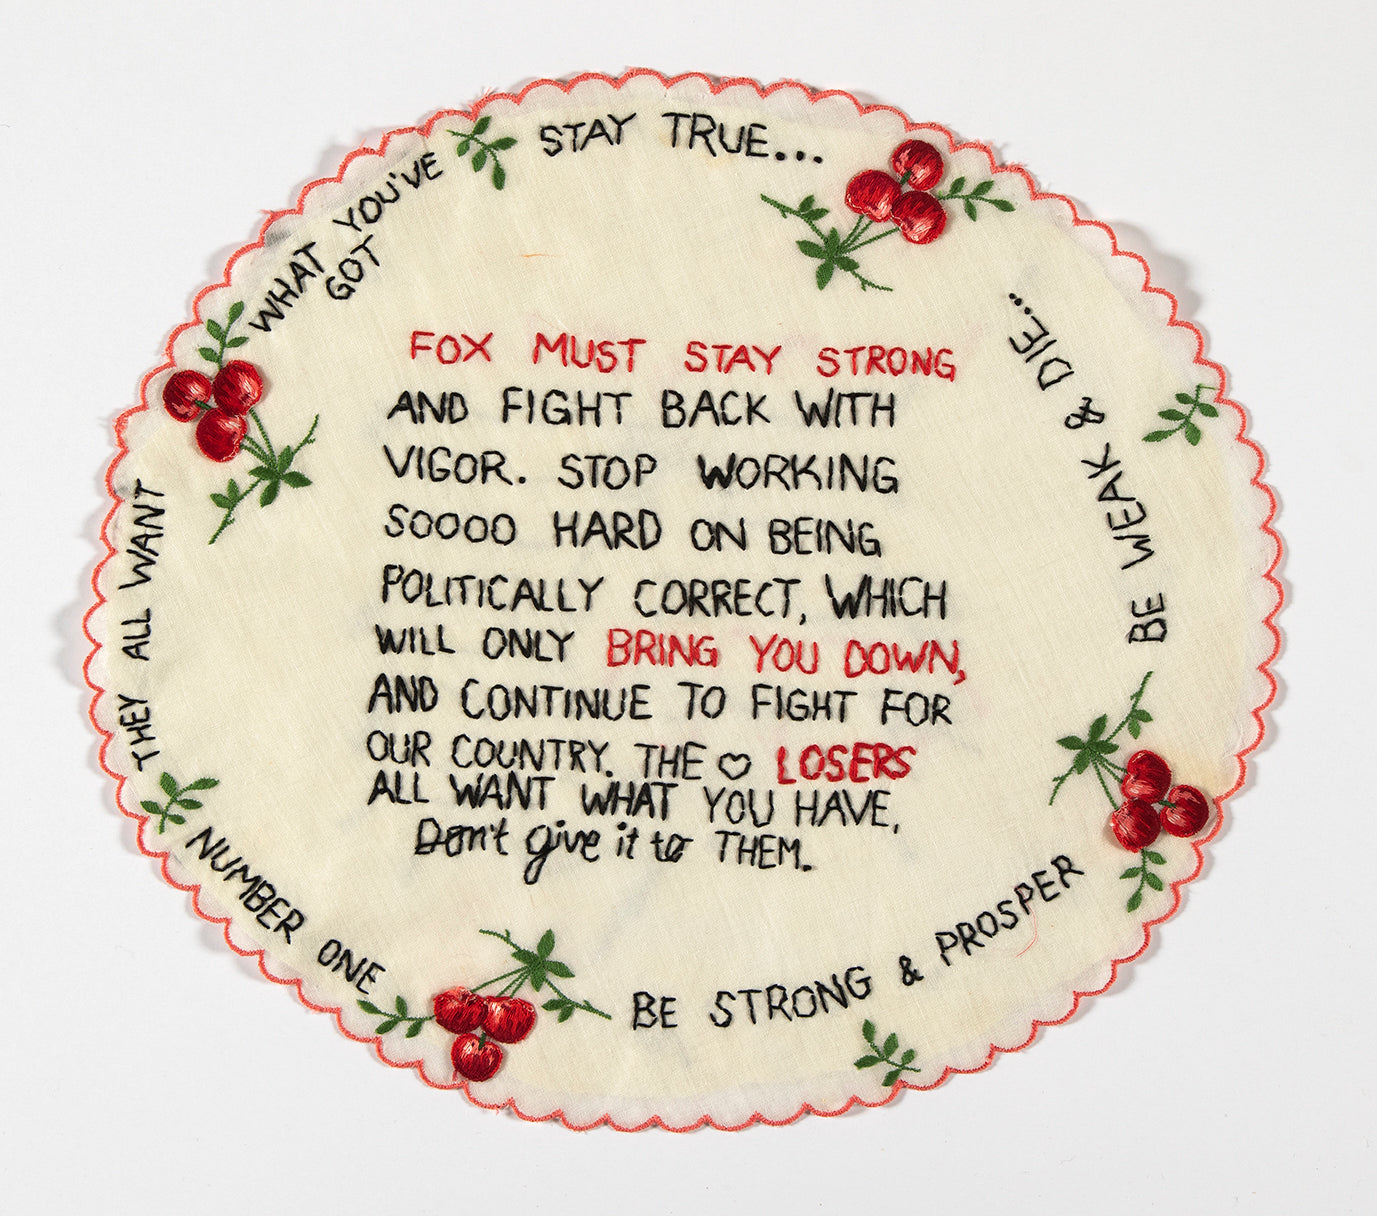 STAY TRUE...
BE WEAK & DIE...
BE STRONG & PROSPER
NUMBER ONE
THEY ALL WANT
WHAT YOU'VE
GOT
FOX MUST STAY STRONG
AND FIGHT BACK WITH
VIGOR. STOP WORKING
SOOOO HARD ON BEING
POLITICALLY CORRECT, WHICH
WILL ONLY BRING YOU DOWN,
AND CONTINUE TO FIGHT FOR
OUR COUNTRY. THE ♡ LOSERS
ALL WANT WHAT YOU HAVE,
Don't give it to THEM.